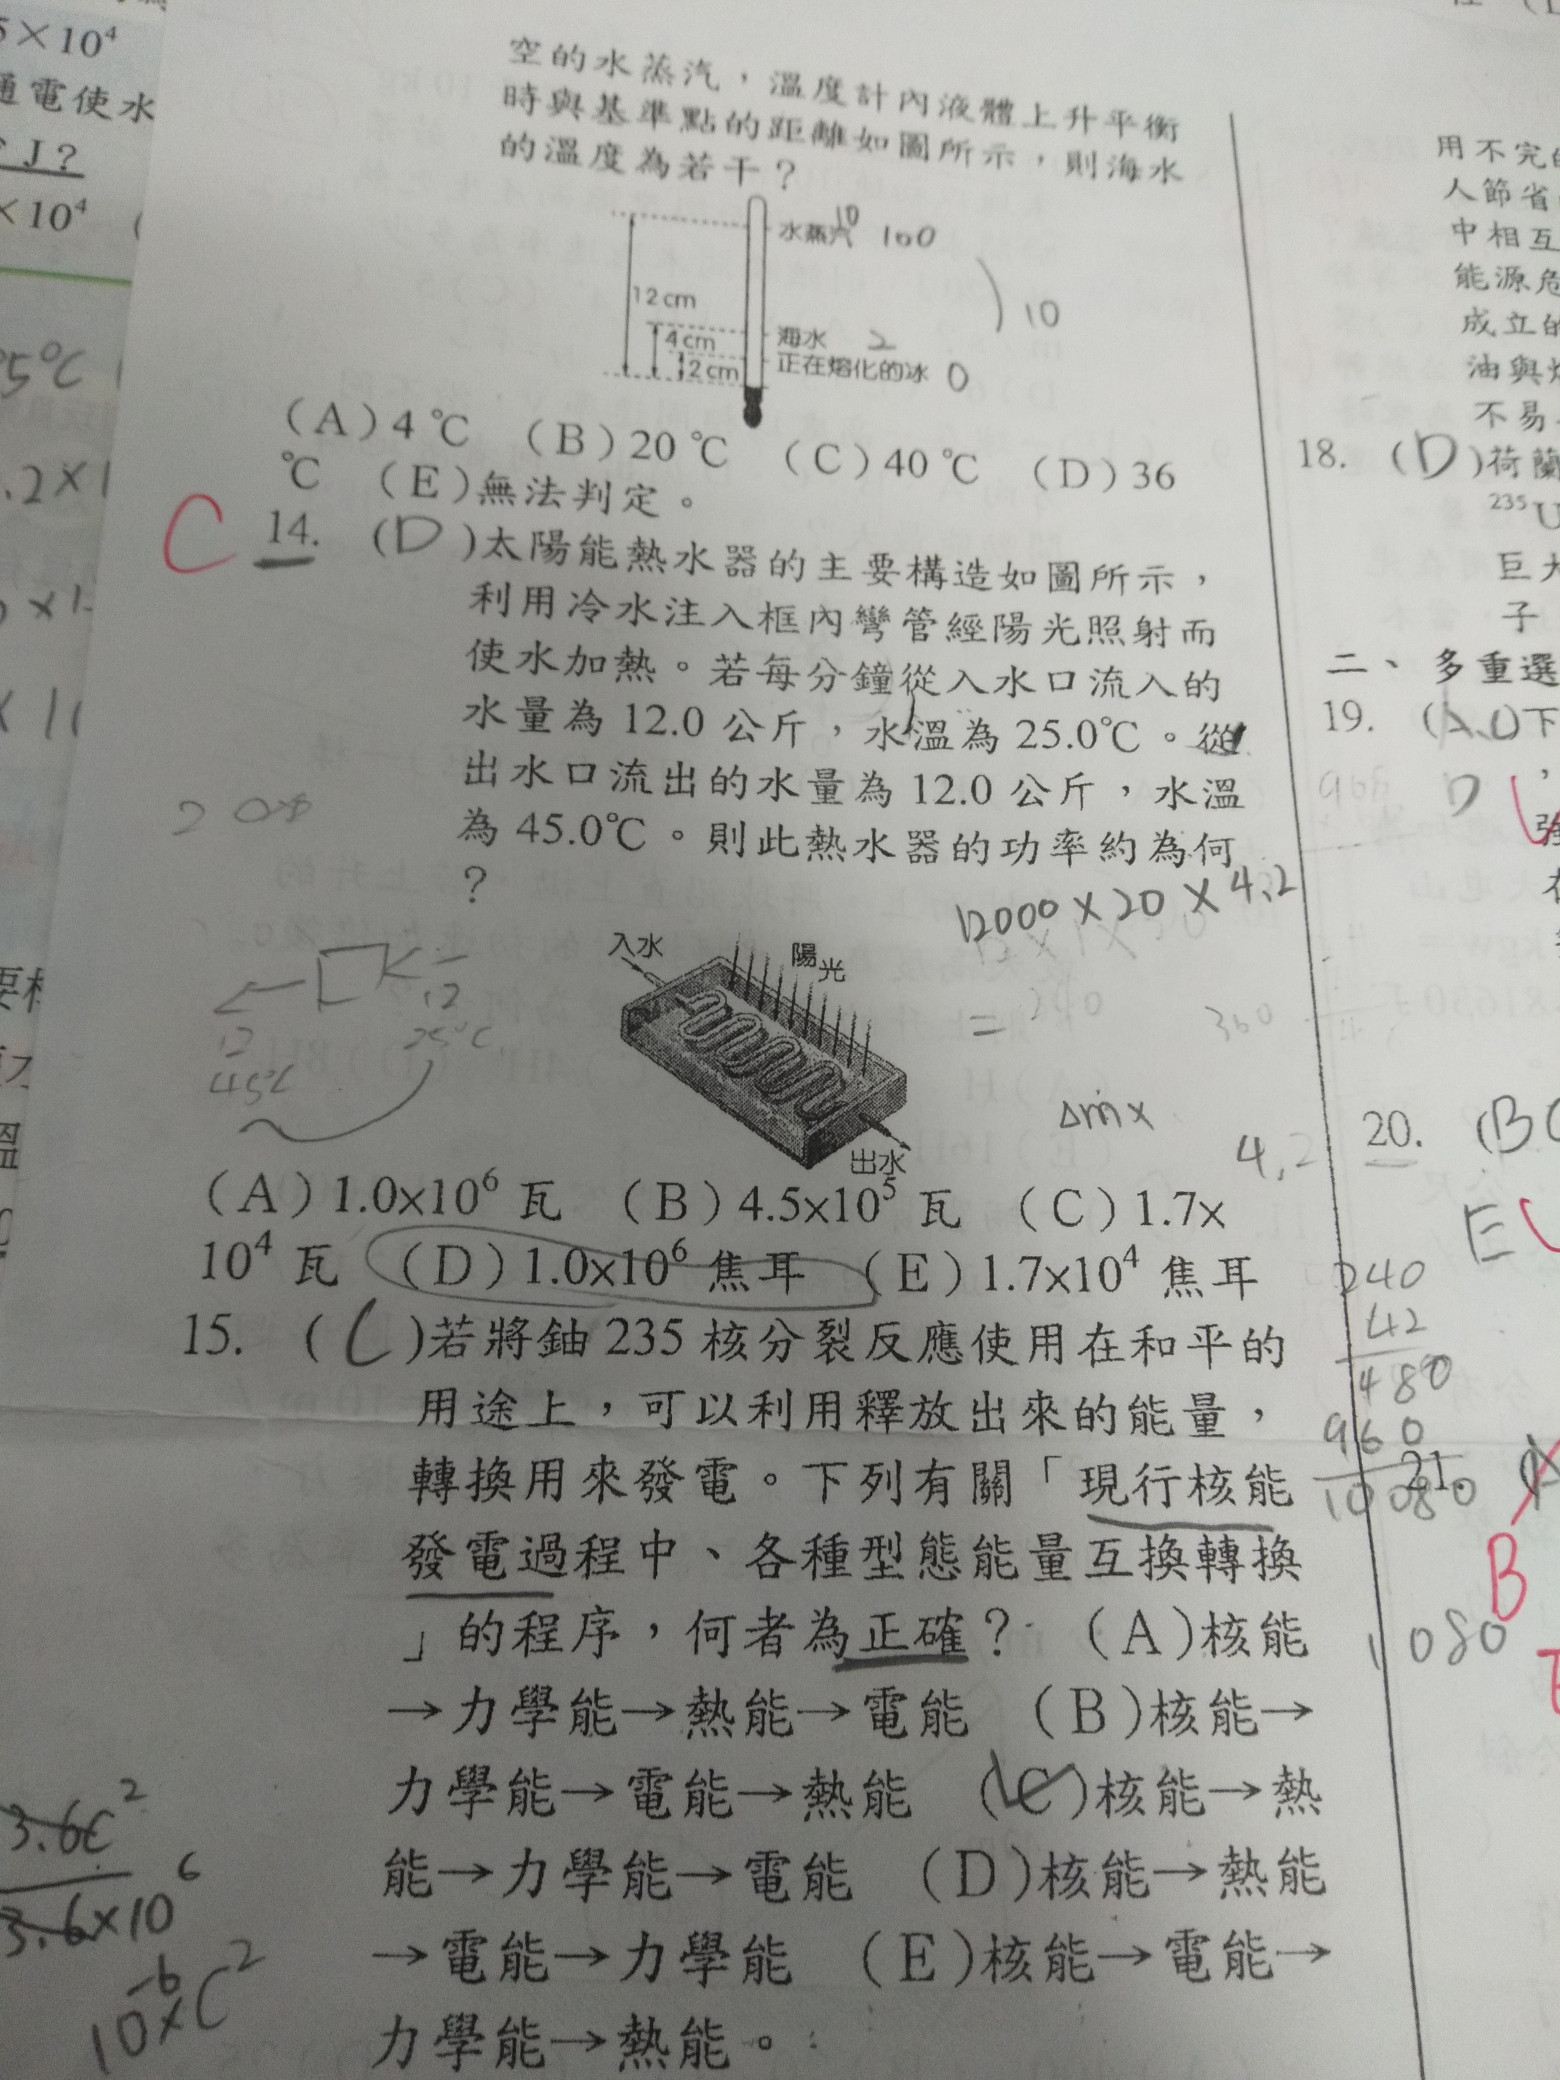 5×10⁴
通電使水
J？
×10⁴ (
5℃
.2×1
×1
×11
空的水蒸汽，溫度計內液體上升平衡
時與基準點的距離如圖所示，則海水
的溫度為若干？
水蒸汽 10 100
12 cm
10
4 cm
海水 2
2 cm
正在熔化的冰 0
(A)4 ℃ (B)20 ℃ (C)40 ℃ (D)36
℃ (E)無法判定。
C 14. (D)太陽能熱水器的主要構造如圖所示，
利用冷水注入框內彎管經陽光照射而
使水加熱。若每分鐘從入水口流入的
水量為 12.0 公斤，水溫為 25.0℃。從
出水口流出的水量為 12.0 公斤，水溫
為 45.0℃。則此熱水器的功率約為何
？
12000×20×4.2
12×1×20
=240
360
12
25℃
12
45℃
入水
陽光
出水
Δm×
4.2
(A)1.0×10⁶ 瓦 (B)4.5×10⁵ 瓦 (C)1.7×
10⁴ 瓦 (D)1.0×10⁶ 焦耳 (E)1.7×10⁴ 焦耳
15. (C)若將鈾 235 核分裂反應使用在和平的
用途上，可以利用釋放出來的能量，
轉換用來發電。下列有關「現行核能
發電過程中、各種型態能量互換轉換
」的程序，何者為正確？ (A)核能
→力學能→熱能→電能 (B)核能→
力學能→電能→熱能 (C)核能→熱
能→力學能→電能 (D)核能→熱能
→電能→力學能 (E)核能→電能→
力學能→熱能。
3.6C²
3.6×10⁶
10⁻⁶×C²
240
42
480
960
10080
1080
用不完
人節省
中相互
能源危
成立的
油與
不易
18. (D)荷蘭
²³⁵U
巨大
子
二、多重選
19. (A.C)下
D
20. (BC
E
21.
B